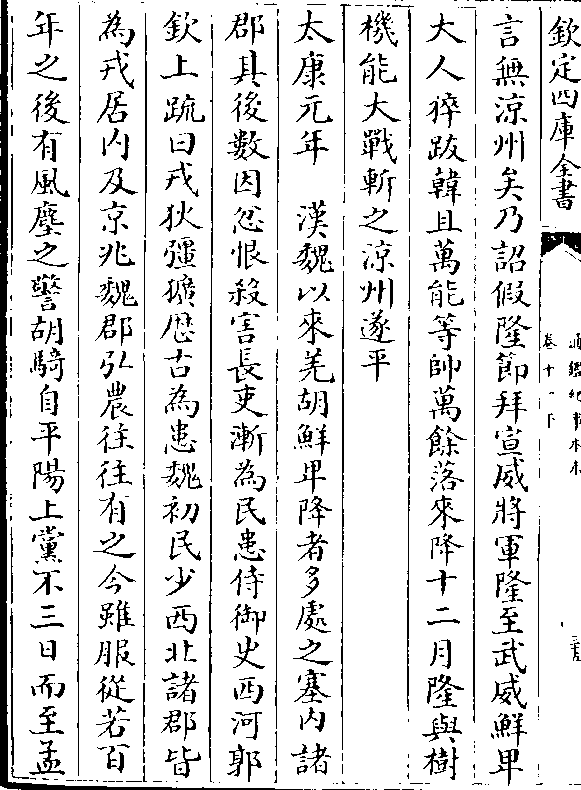 欽定四庫全書
通鑑紀事本末
卷十一下
言無涼州矣乃詔假隆節拜宣威將軍隆至武威鮮卑
大人猝跋韓且萬能等帥萬餘落來降十二月隆與樹
機能大戰斬之涼州遂平
太康元年　漢魏以來羌胡鮮卑降者多處之塞內諸
郡其後數因忿恨殺害長吏漸為民患侍御史西河郭
欽上疏曰戎狄彊獷歷古為患魏初民少西北諸郡皆
為戎居內及京兆魏郡弘農往往有之今雖服從若百
年之後有風塵之警胡騎自平陽上黨不三日而至孟